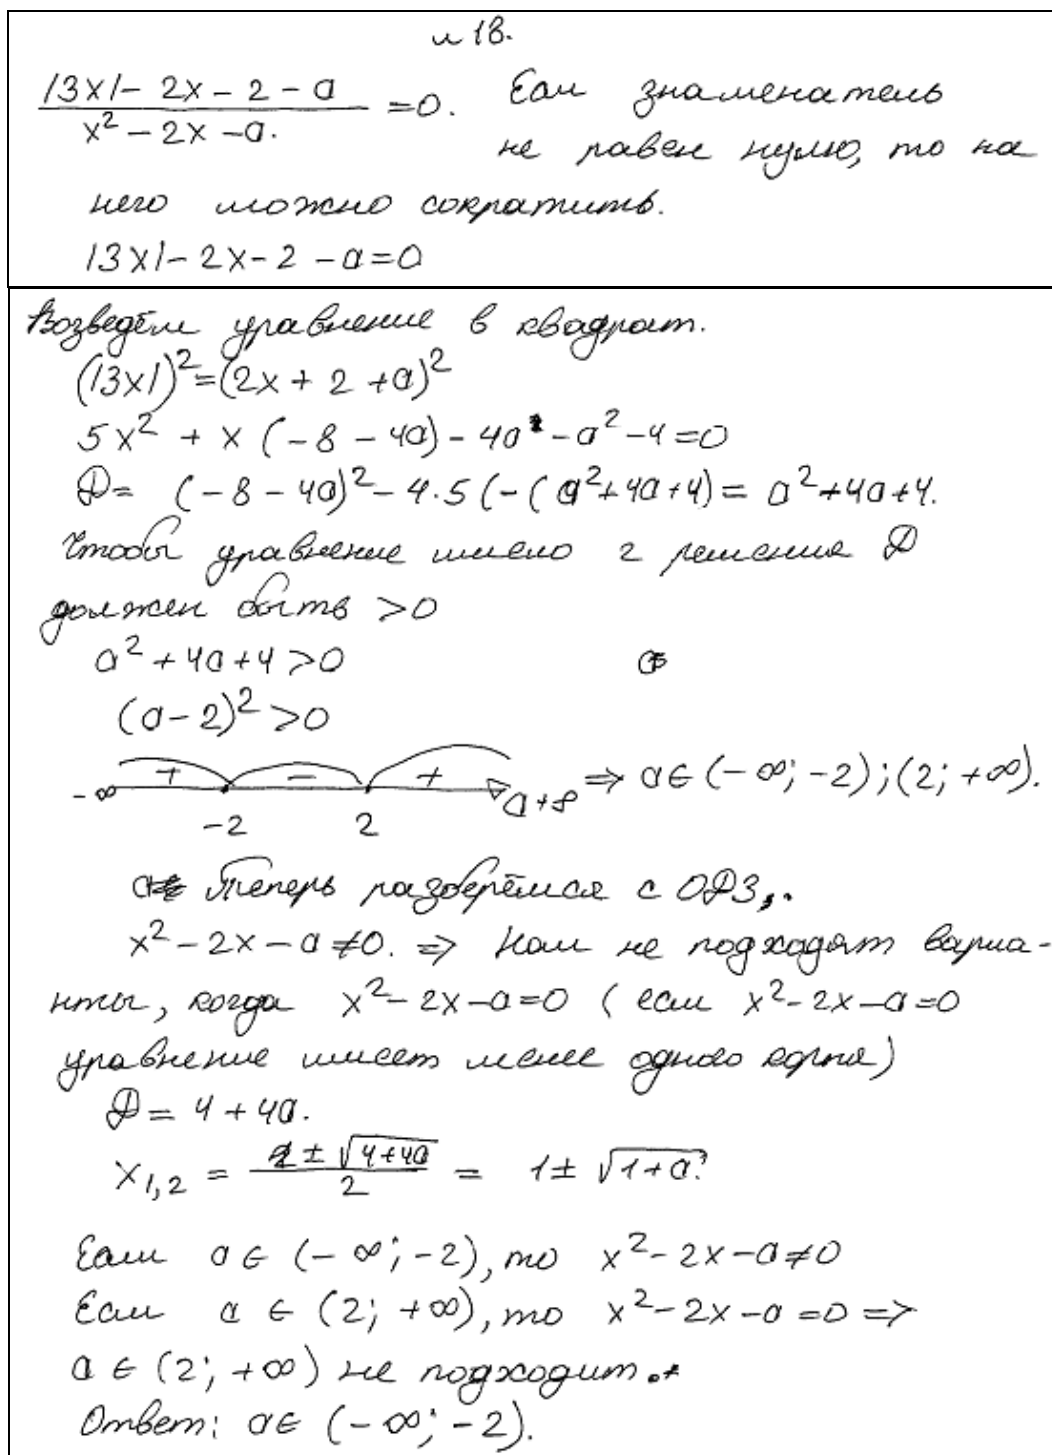 № 18.
|3x| - 2x - 2 - a / x² - 2x - a. = 0. Если знаменатель
не равен нулю, то на
него можно сократить.
|3x| - 2x - 2 - a = 0
Возведём уравнение в квадрат.
(|3x|)² = (2x + 2 + a)²
5x² + x (-8 - 4a) - 4a - a² - 4 = 0
D = (-8 - 4a)² - 4·5 (-(a² + 4a + 4) = a² + 4a + 4.
Чтобы уравнение имело 2 решения D
должен быть > 0
a² + 4a + 4 > 0
(a - 2)² > 0
+ - +
-∞ -2 2 a +∞ ⇒ a ∈ (-∞; -2); (2; +∞).
Теперь разберёмся с ОДЗ.
x² - 2x - a ≠ 0. ⇒ Нам не подходят вариа-
нты, когда x² - 2x - a = 0 (если x² - 2x - a = 0
уравнение имеет менее одного корня)
D = 4 + 4a.
x₁,₂ = 2 ± √4+4a / 2 = 1 ± √1+a.
Если a ∈ (-∞; -2), то x² - 2x - a ≠ 0
Если a ∈ (2; +∞), то x² - 2x - a = 0 ⇒
a ∈ (2; +∞) не подходит.
Ответ: a ∈ (-∞; -2).